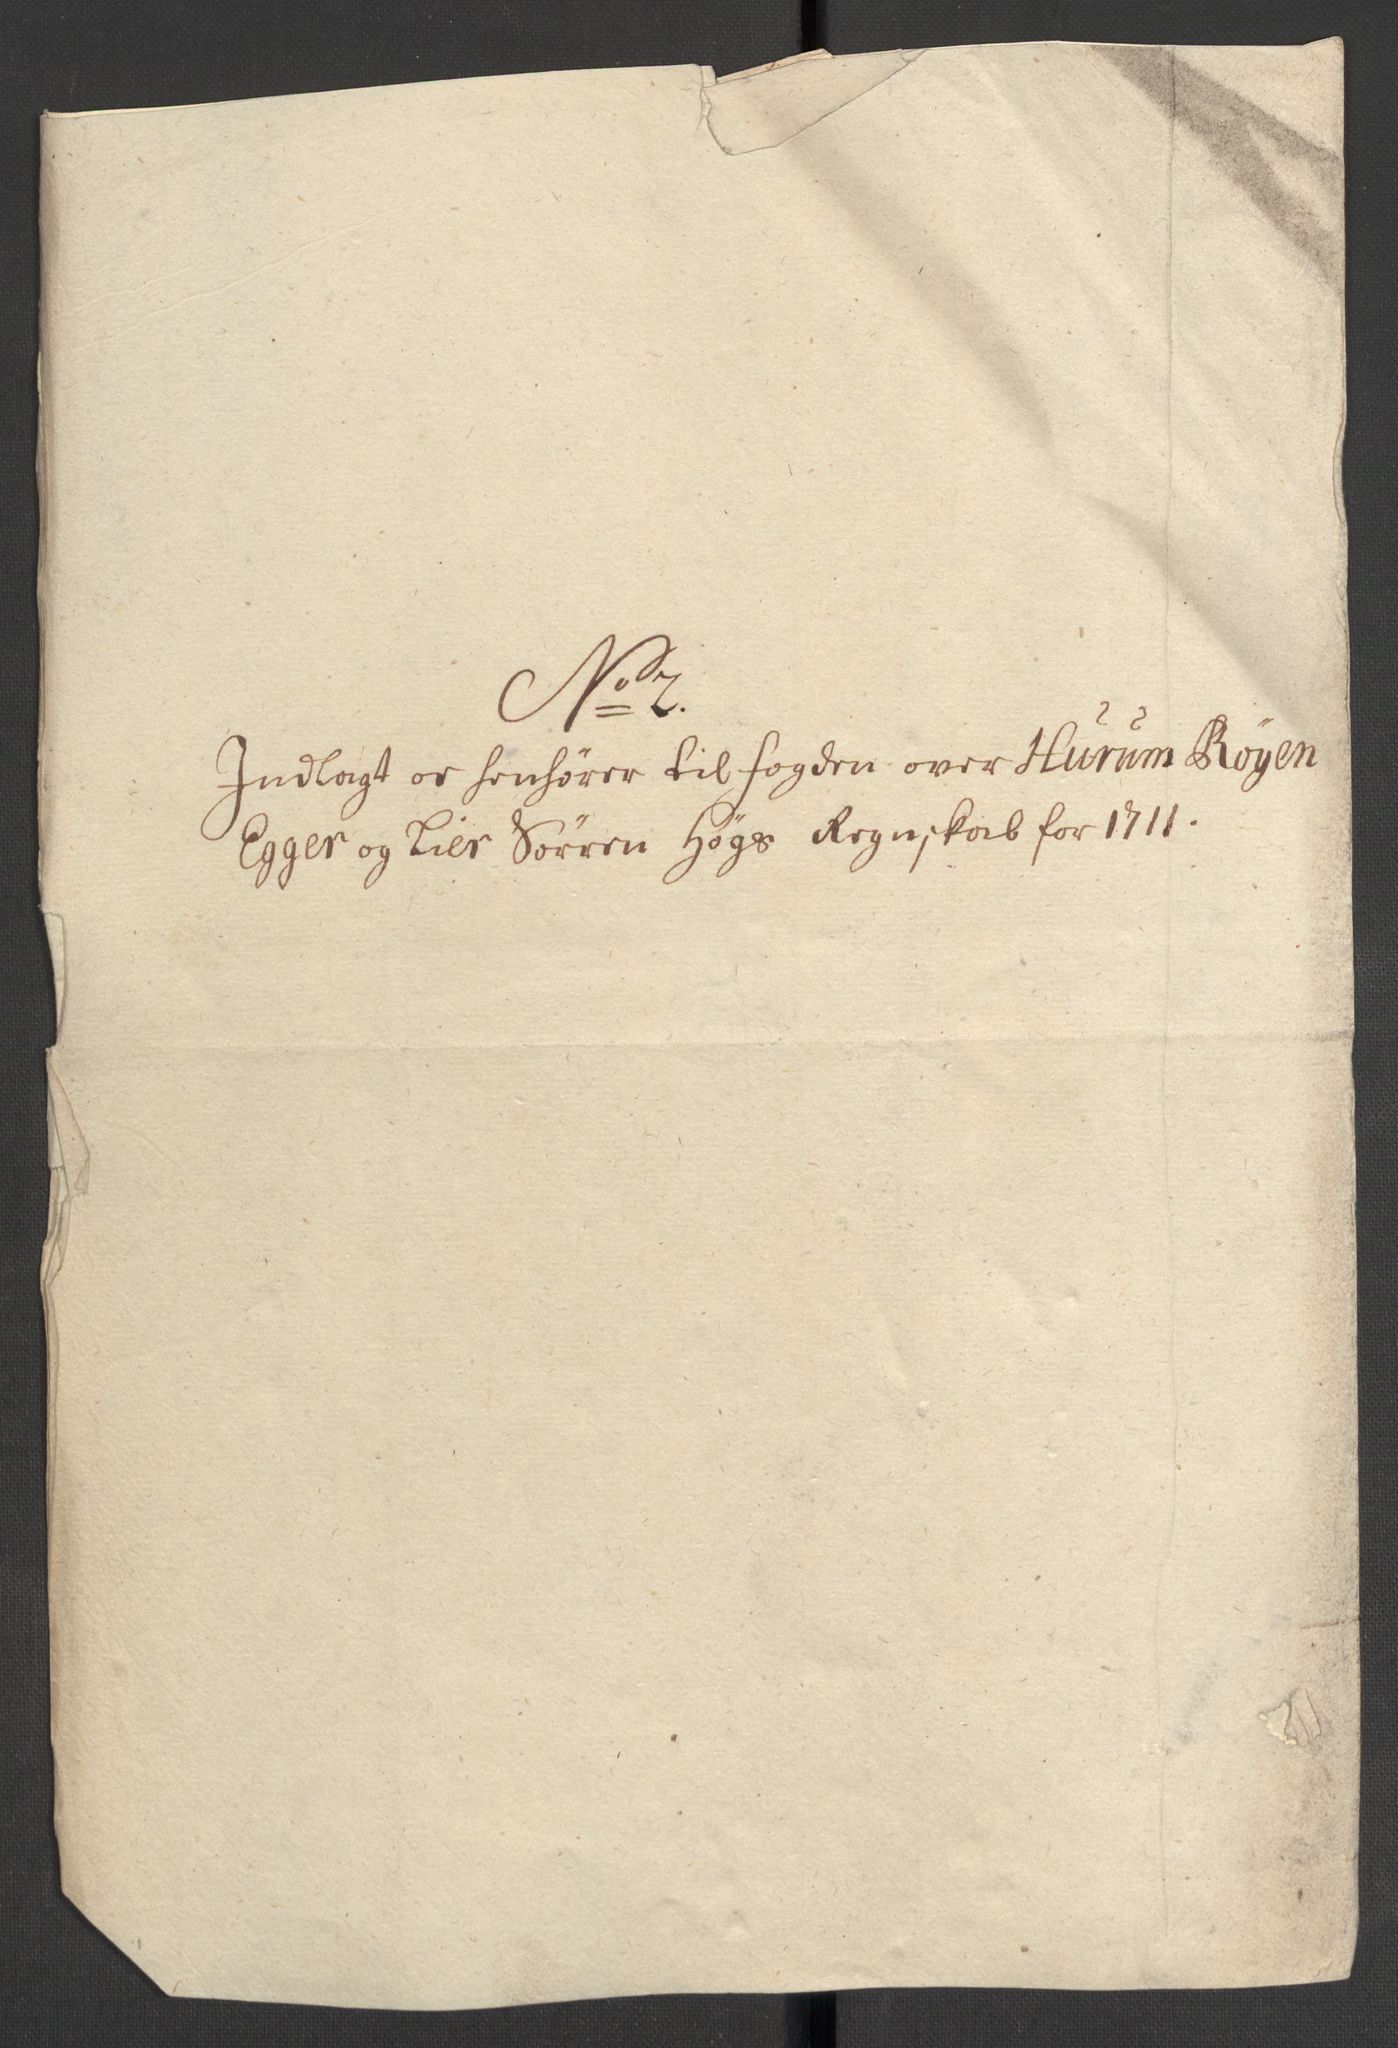 No 2.
Indlagt oc henhører til fogden over Hurum Röyen
Egger og Lier Sörren Högs Regnskab for 1711.